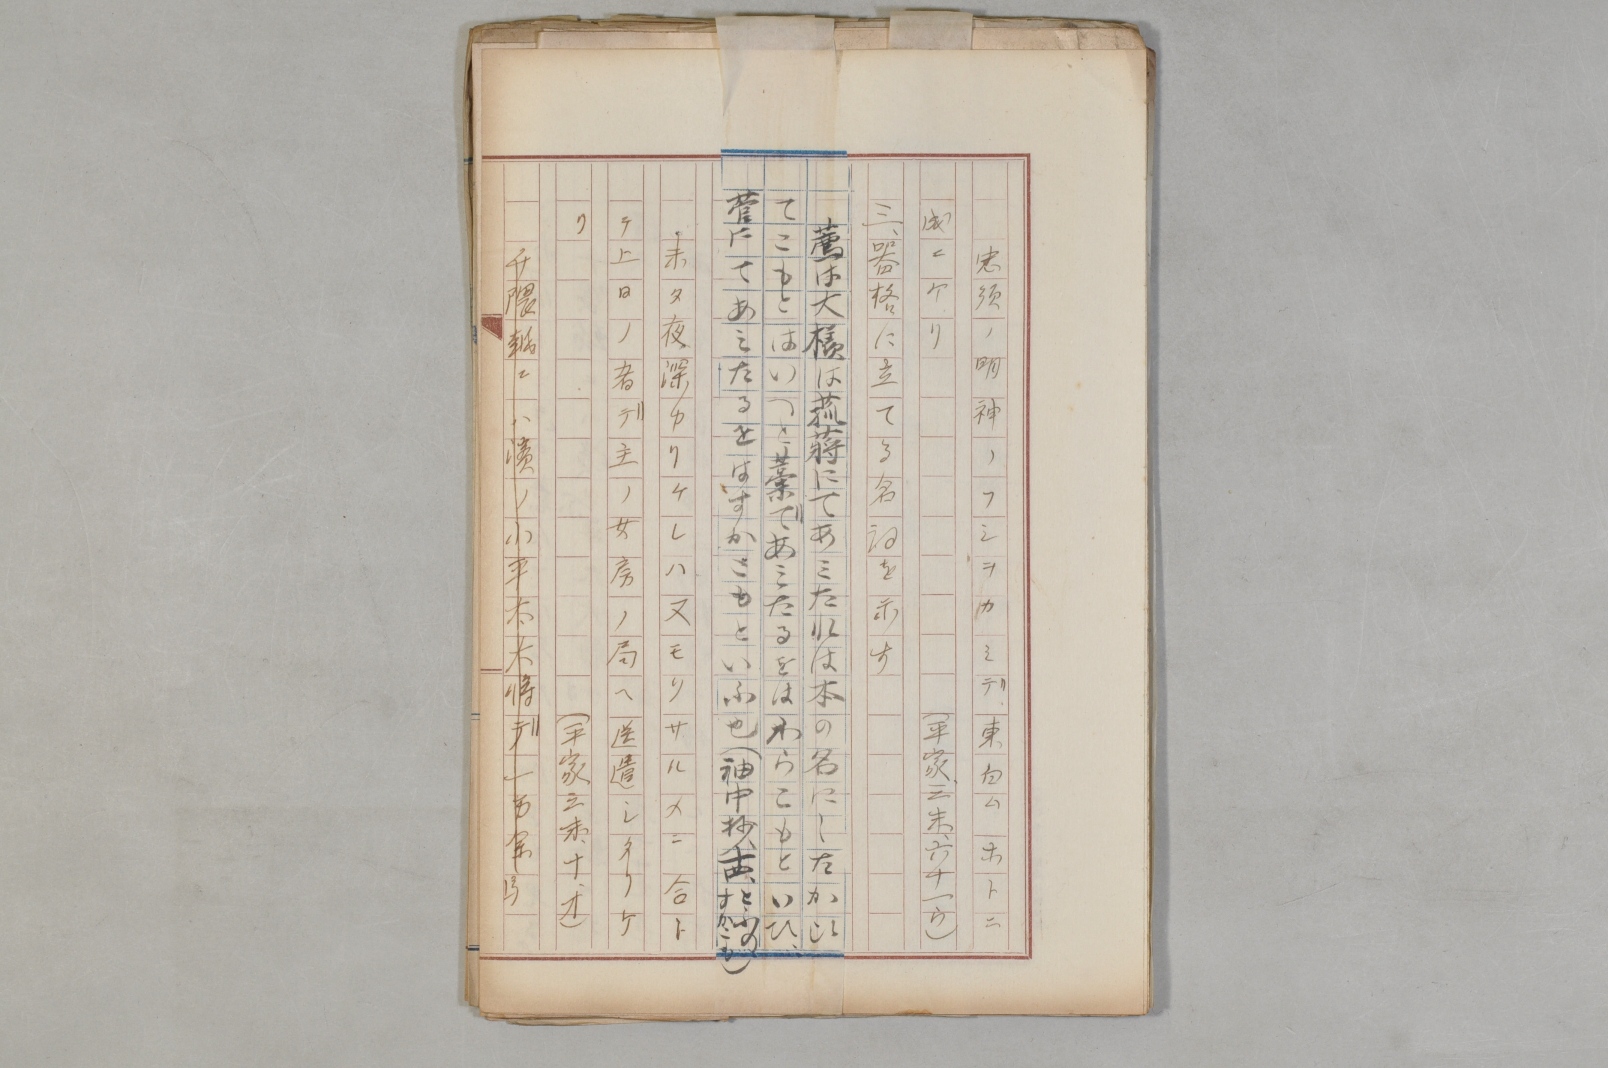 忠須ノ明神ノフシヲカミデ東白ムホトニ
成ニケリ　（平家、三末、六十一ウ）
三、器格に立てる名詞を示す
薦は大様は菰蒋にてあミたれは本の名にしたかひ
てこもとはいつと藁であミたるをはわらこもといひ、
菅にてあミたるをはすかこもといふ也（袖中抄、
未タ夜深カリケレハ又モリサルメニ合ト
テ上日ノ者デ主ノ女房ノ局ヘ送遣シタリケ
リ　（平家三末、十、オ）
ニハ濱ノ小平太大将デ一百余